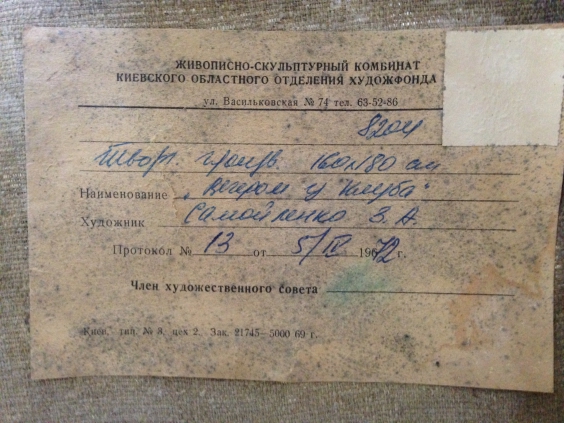 ЖИВОПИСНО-СКУЛЬПТУРНЫЙ КОМБИНАТ
КИЕВСКОГО ОБЛАСТНОГО ОТДЕЛЕНИЯ ХУДОЖФОНДА
ул. Васильковская № 74 тел. 63-52-86
8204
Творч. произв. 160х180 см
Наименование „Вечером у клуба"
Художник Самойленко З. А.
Протокол № 13 от 5/IV 1972 г.
Член художественного совета
Киев. тип. № 3. цех 2. Зак. 21745—5000 69 г.